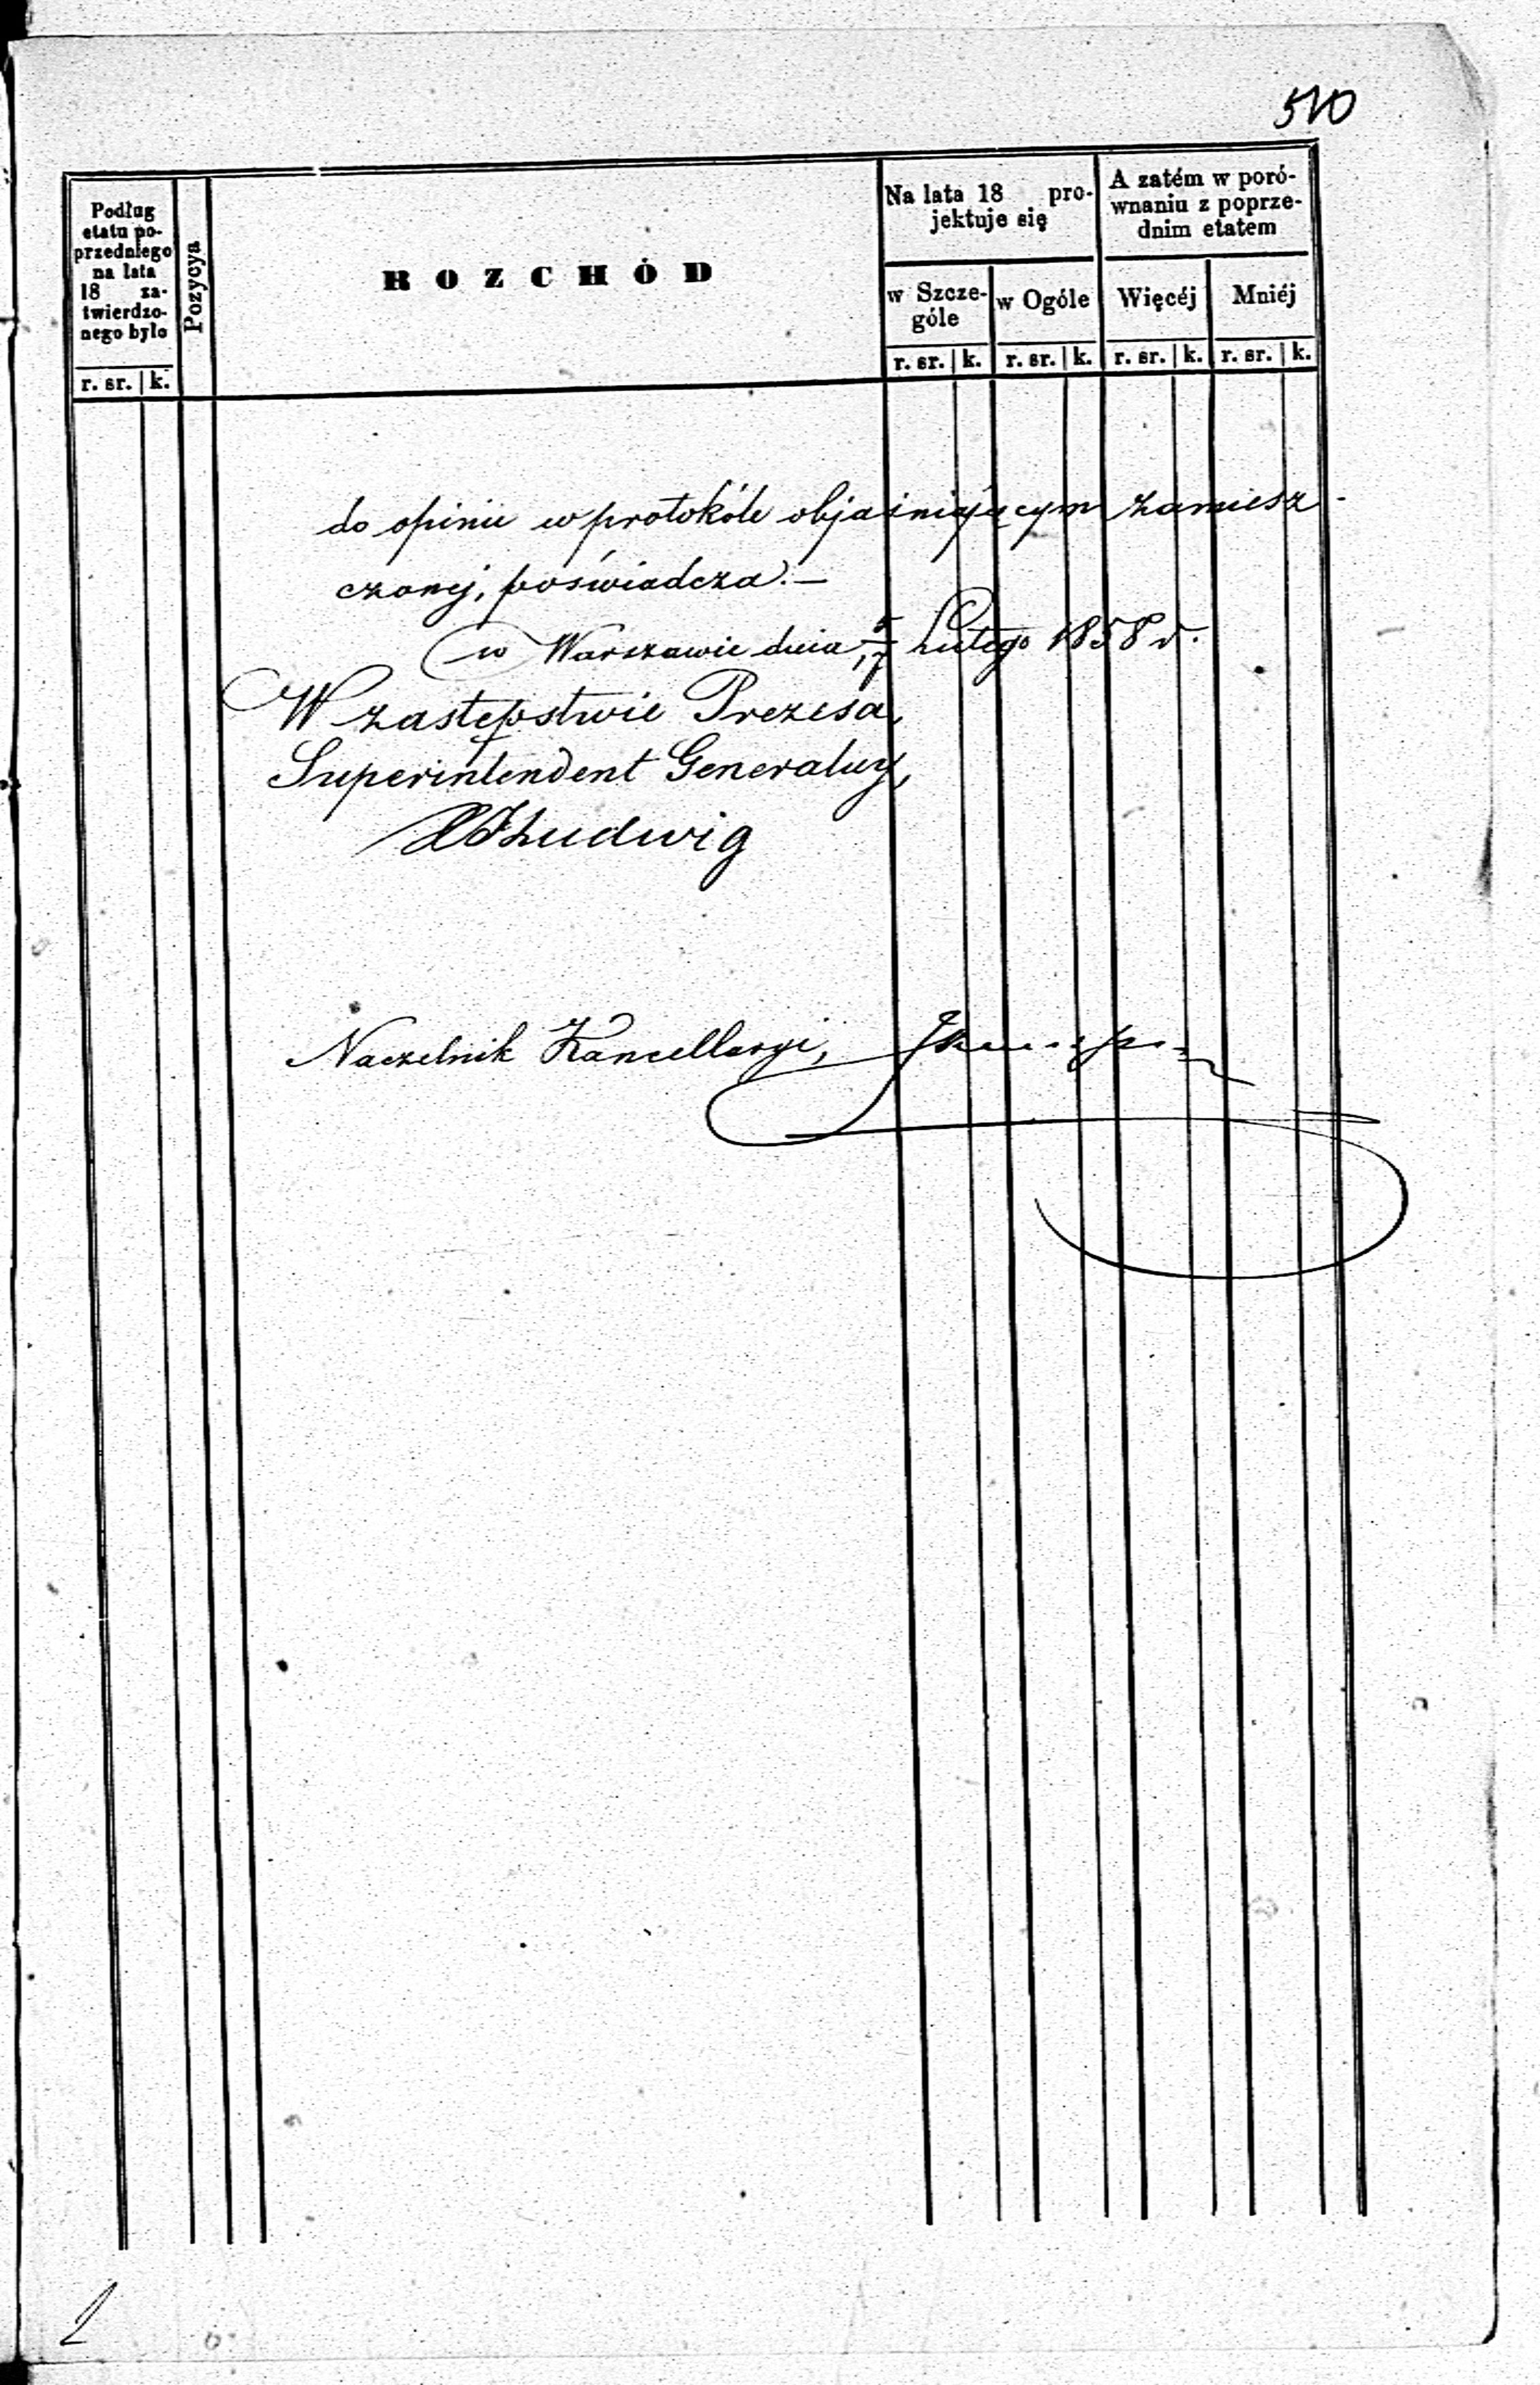 510
Podług
etatu po-
przedniego
na lata
18 za-
twierdzo-
nego było
r. sr. k.
Pozycya
ROZCHÓD
Na lata 18 pro-
jektuje się
w Szcze-
góle
r. sr. k.
w Ogóle
r. sr. k.
A zatém w poró-
wnaniu z poprze-
dnim etatem
Więcéj
r. sr. k.
Mniéj
r. sr. k.
do opinii w protokóle objaśniającym zamiesz-
czonej, poświadcza.—
w Warszawie dnia 5/17 Lutego 1858 r.
W zastępstwie Prezesa,
Superintendent Generalny,
Ludwig
Naczelnik Kancellaryi,